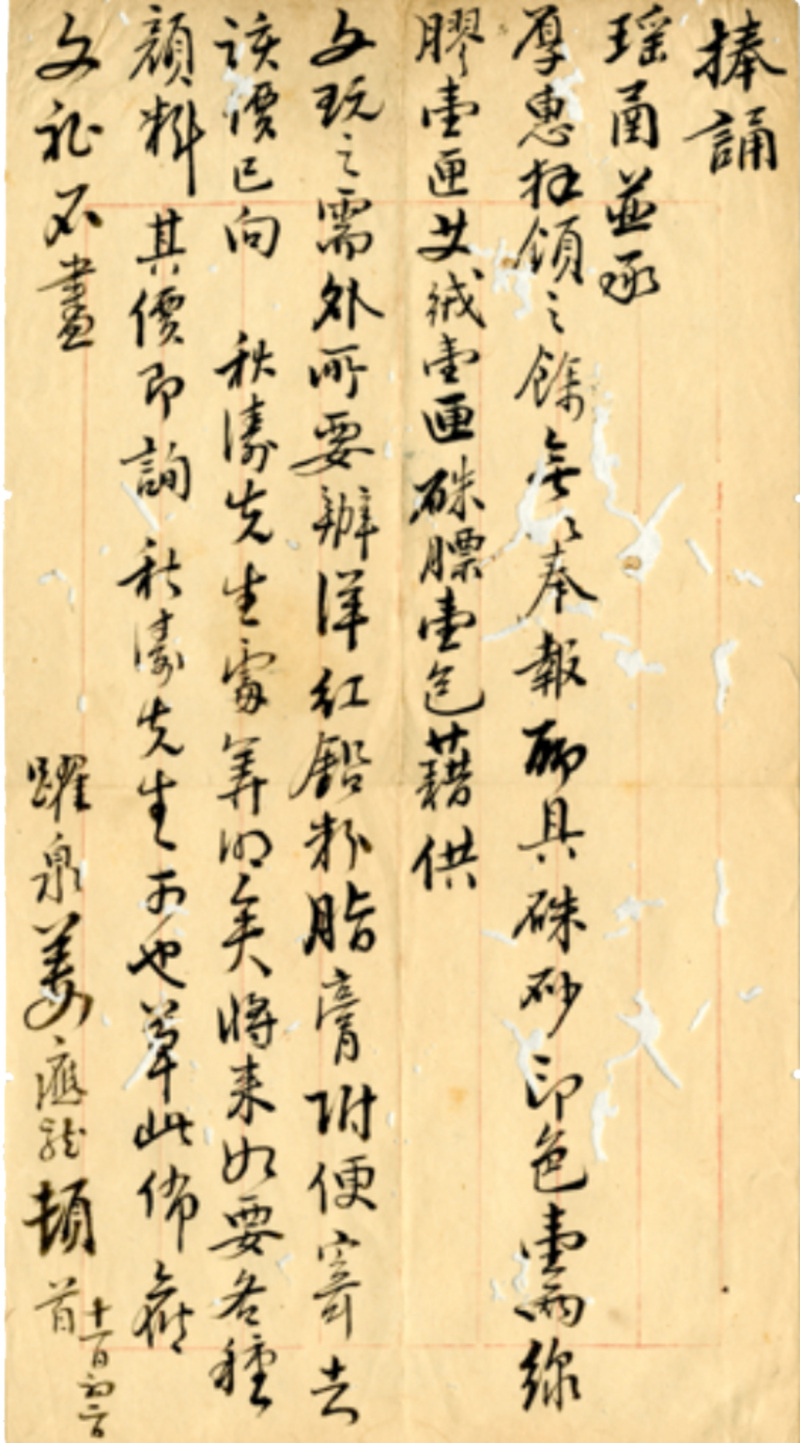 捧誦
瑤函並承
厚惠拜領之餘無以奉報聊具硃砂印色壹兩綠
膠壹匣艾絨壹匣硃膘壹包藉供
文玩之需外所要辦洋紅鉛粉脂膏附便寄去
該價已向 秋濤先生處算明矣將來如要各種
顏料其價即詢 秋濤先生可也草此佈
文祉不盡
躍泉姜應龍頓首